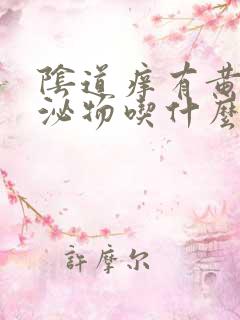 陰道癢有黃
泌物喫什麼
許摩尔